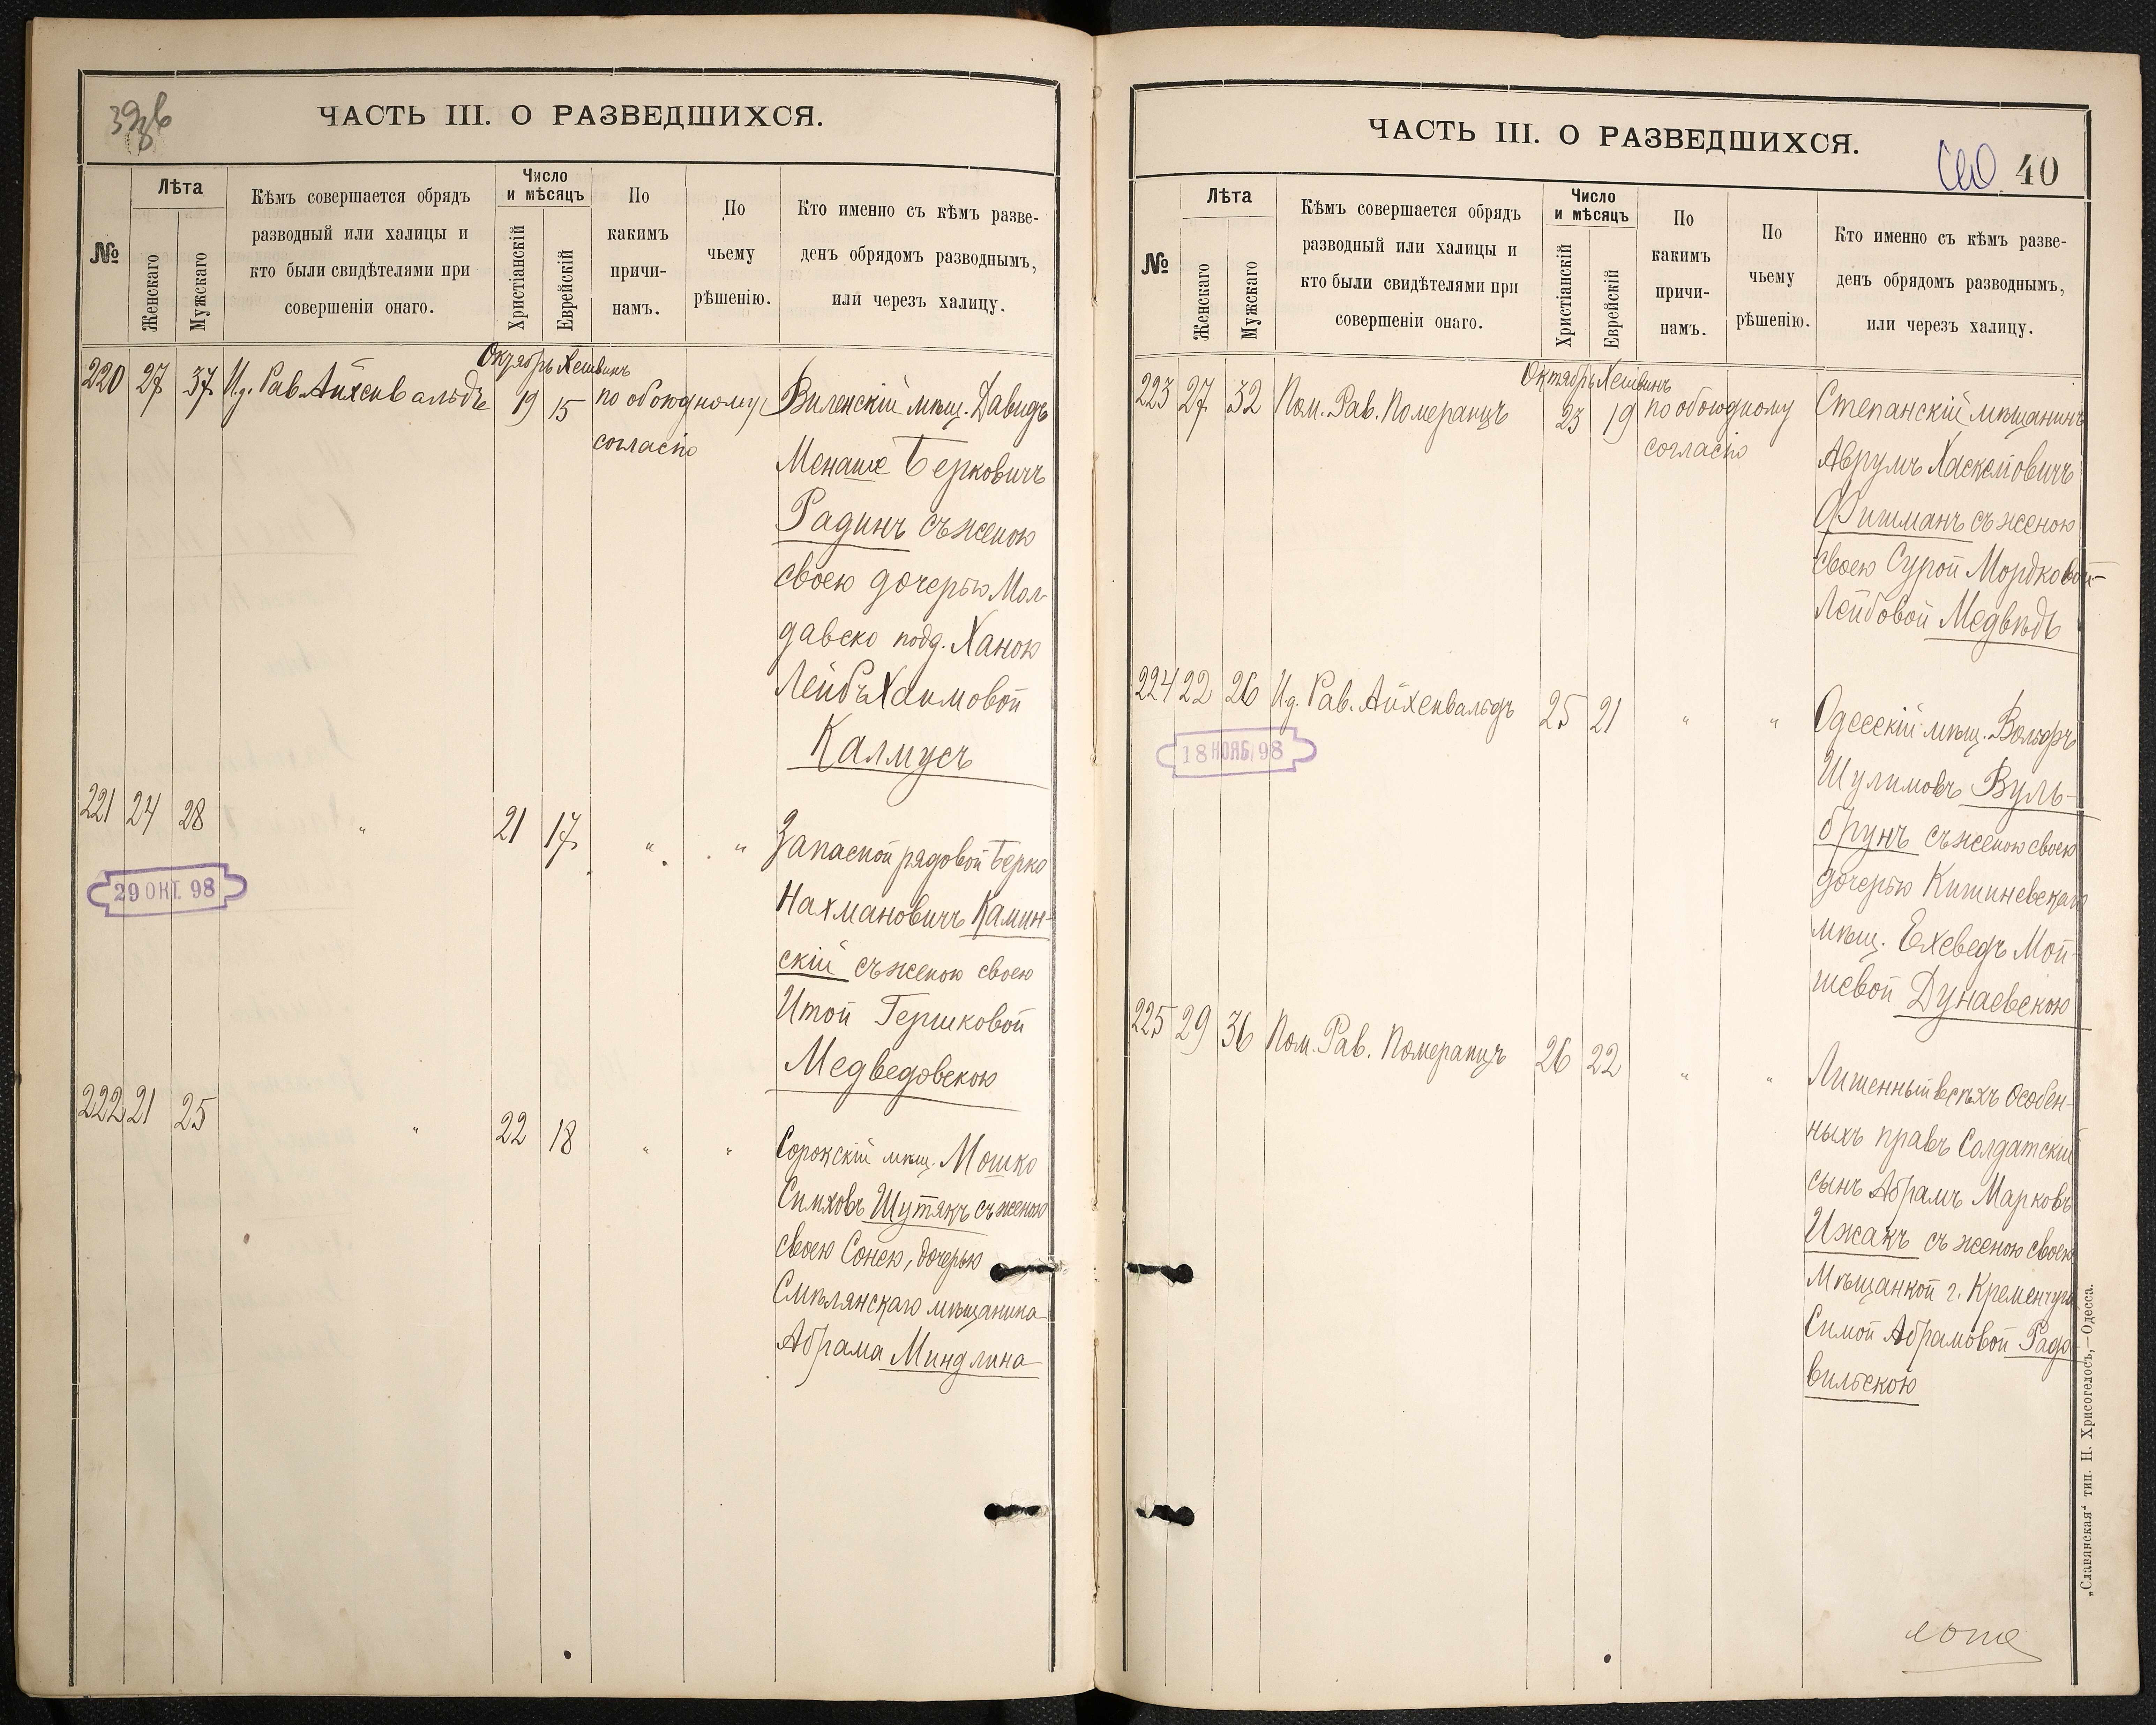 ЧАСТЬ III. О РАЗВЕДШИХСЯ.
№
Лѣта
Женскаго
Мужскаго
Кѣмъ совершается обрядъ
разводный или халицы и
кто были свидѣтелями при
совершеніи онаго.
Число
и мѣсяцъ
Христіанскій
Еврейскій
По
какимъ
причи-
намъ.
По
чьему
рѣшенію.
Кто именно съ кѣмъ разве-
денъ обрядомъ разводнымъ,
или черезъ халицу.
Октябрь Хешвинъ
220 27 37 И.д. Рав. Айхенвальдъ 19 15 по обоюдному Виленскій мѣщ. Давидъ
согласію
Менаше Берковичъ
Радинъ съ женою
своею дочерью Мол-
давско подд. Ханою
Лейбъ Хаимовой
Калмусъ
221 24 28 " 21 17 " " Запасной рядовой Берко
29 ОКТ. 98
Нахмановичъ Камин-
скій съ женою своею
Итой Гершковой
Медведовскою
222 21 25 " 22 18 " " Сорокскій мѣщ. Мошко
Симховъ Шутякъ съ женою
своею Сонею, дочерью
Смѣлянскаго мѣщанина
Абрама Миндлина
ЧАСТЬ III. О РАЗВЕДШИХСЯ.
40
№
Лѣта
Женскаго
Мужскаго
Кѣмъ совершается обрядъ
разводный или халицы и
кто были свидѣтелями при
совершеніи онаго.
Число
и мѣсяцъ
Христіанскій
Еврейскій
По
какимъ
причи-
намъ.
По
чьему
рѣшенію.
Кто именно съ кѣмъ разве-
денъ обрядомъ разводнымъ,
или черезъ халицу.
Октябрь Хешвинъ
223 27 32 Пом. Рав. Померанцъ 23 19 по обоюдному Степанскій мѣщанинъ
согласію
Аврумъ Хаскелiовичъ
Фишманъ съ женою
своею Сурой Мордковой-
Лейбовой Медвѣдь
224 22 26 И.д. Рав. Айхенвальдъ 25 21 " " Одесскій мѣщ. Вольфъ
18 НОЯБ. 98
Шулимовъ Вуль-
брунъ съ женою своею
дочерью Кишиневскаго
мѣщ. Ехеведъ Мой-
шевой Дунаевскою
225 29 36 Пом. Рав. Померанцъ 26 22 " " Лишенный всѣхъ особен-
ныхъ правъ Солдатскій
сынъ Абрамъ Марковъ
Ижакъ съ женою своею
Мѣщанкой г. Кременчуга
Симой Абрамовой Радо-
вильскою
„Славянская“ тип. Н. Хрисогелосъ,—Одесса.